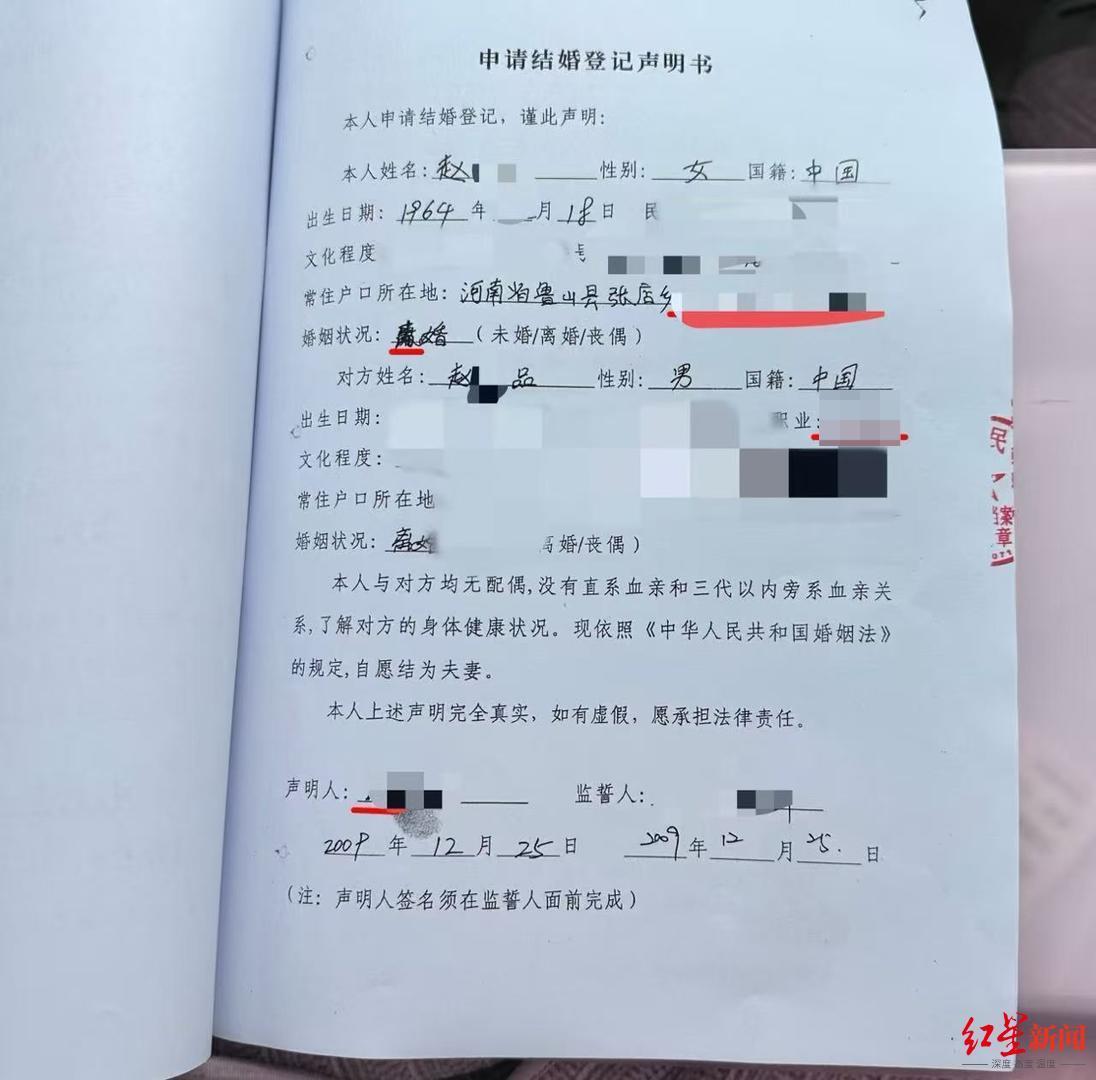 申请结婚登记声明书
本人申请结婚登记，谨此声明：
本人姓名：赵 性别：女 国籍：中国
出生日期：1964年 月18日 民
文化程度 号
常住户口所在地：河南省鲁山县张店乡
婚姻状况：离婚（未婚/离婚/丧偶）
对方姓名：赵 品 性别：男 国籍：中国
出生日期： 职业：
文化程度：
常住户口所在地
婚姻状况：离婚 离婚/丧偶）
本人与对方均无配偶,没有直系血亲和三代以内旁系血亲关
系,了解对方的身体健康状况。现依照《中华人民共和国婚姻法》
的规定,自愿结为夫妻。
本人上述声明完全真实，如有虚假，愿承担法律责任。
声明人： 监誓人：
2009年12月25日 2009年12月25日
（注：声明人签名须在监誓人面前完成）
民
档案
章
红星新闻
深度 态度 温度